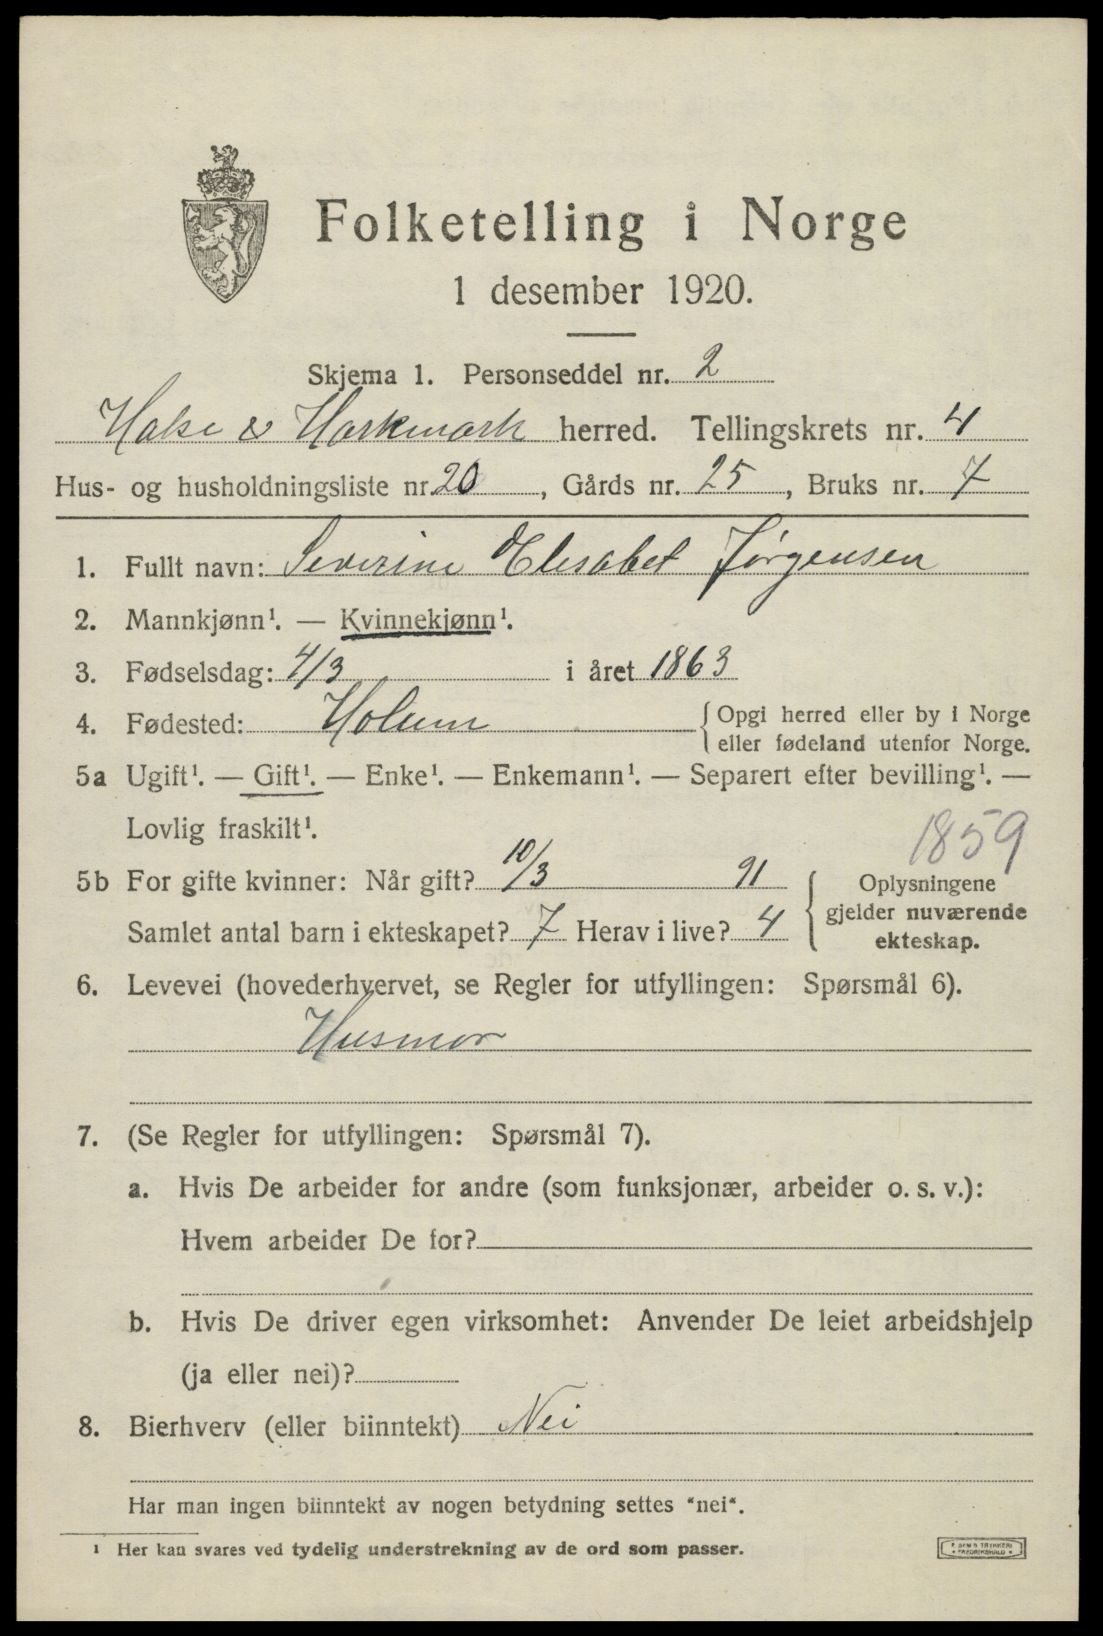 Folketelling i Norge
1 desember 1920.
Skjema 1. Personseddel nr. 2
Halse & Harkmark herred. Tellingskrets nr. 4
Hus- og husholdningsliste nr. 20, Gårds nr. 25, Bruks nr. 7
1. Fullt navn: Severine Elisabet Jørgensen
2. Mannkjønn¹. — Kvinnekjønn¹.
3. Fødselsdag: 4/3 i året 1863
4. Fødested: Holum { Opgi herred eller by i Norge
eller fødeland utenfor Norge.
5a Ugift¹. — Gift¹. — Enke¹. — Enkemann¹. — Separert efter bevilling¹. —
Lovlig fraskilt¹.
1859
5b For gifte kvinner: Når gift? 10/3 91 { Oplysningene
gjelder nuværende
ekteskap.
Samlet antal barn i ekteskapet? 7 Herav i live? 4
6. Levevei (hovederhvervet, se Regler for utfyllingen: Spørsmål 6).
Husmor
7. (Se Regler for utfyllingen: Spørsmål 7).
a. Hvis De arbeider for andre (som funksjonær, arbeider o. s. v.):
Hvem arbeider De for?
b. Hvis De driver egen virksomhet: Anvender De leiet arbeidshjelp
(ja eller nei)?
8. Bierhverv (eller biinntekt) Nei
Har man ingen biinntekt av nogen betydning settes "nei".
¹ Her kan svares ved tydelig understrekning av de ord som passer.
TRYKKERI
FREDRIKSHALD